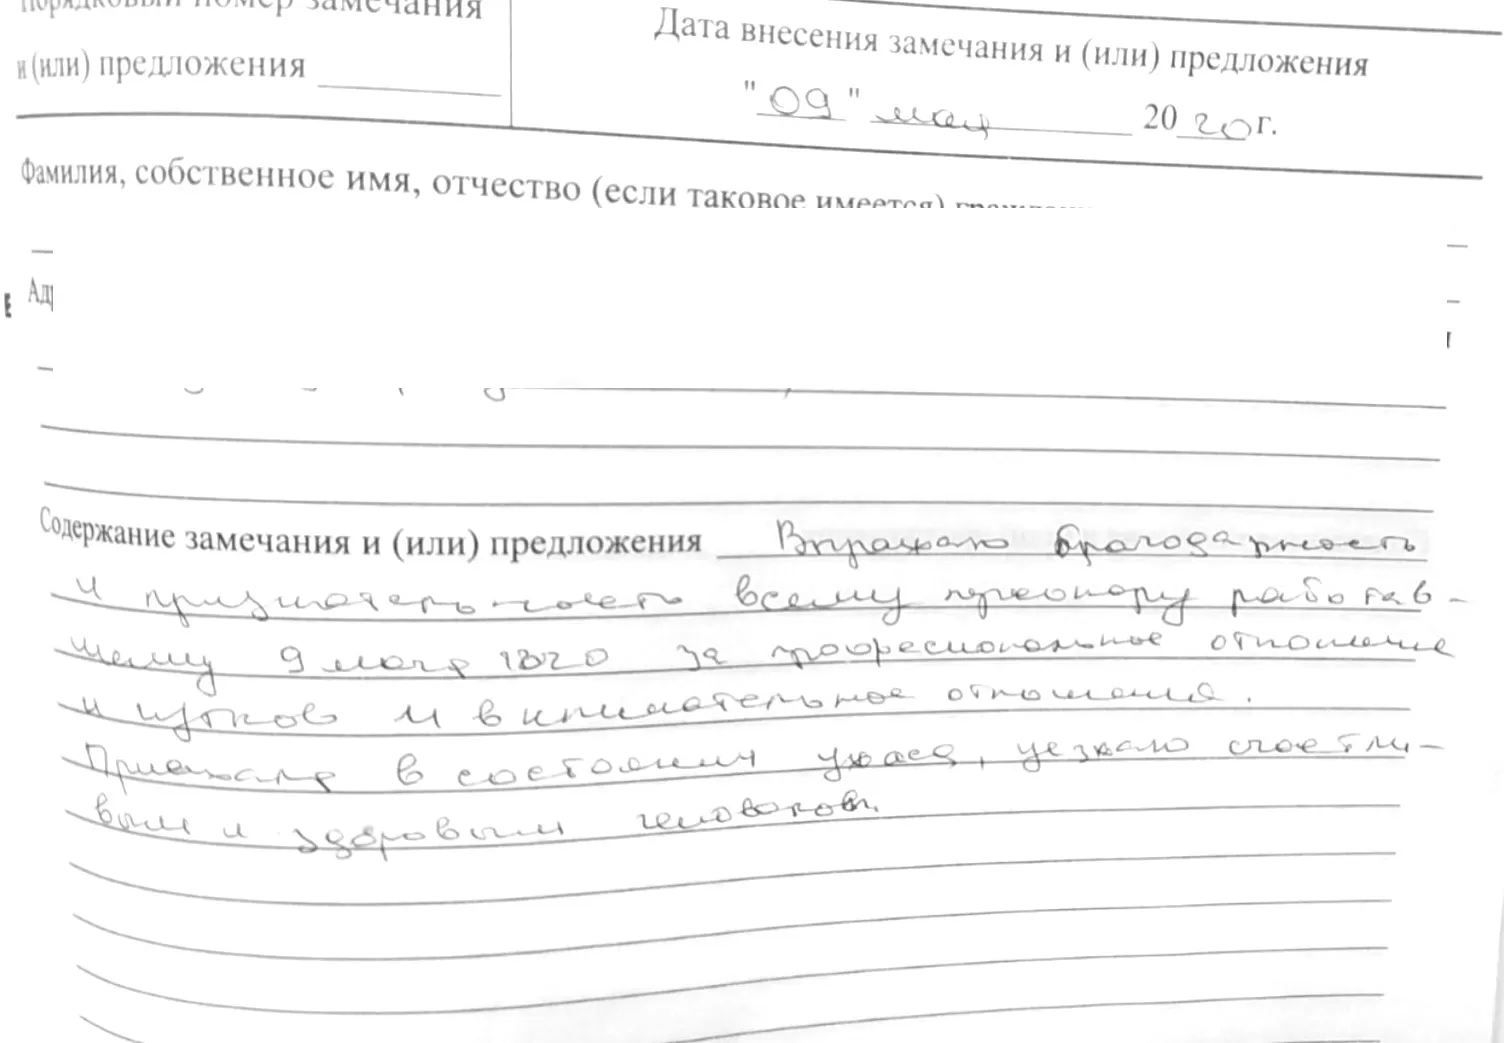 Порядковый номер замечания
и (или) предложения
Дата внесения замечания и (или) предложения
"09" мая 2020 г.
Фамилия, собственное имя, отчество (если таковое имеется)
Содержание замечания и (или) предложения Выражаю благодарность
и признательность всему персоналу работав-
шему 9 мая за професиональное отношение
и чуткое и внимательное отношение.
Приехала в состоянии ужаса, уезжаю счастли-
вым и здоровым человеком.